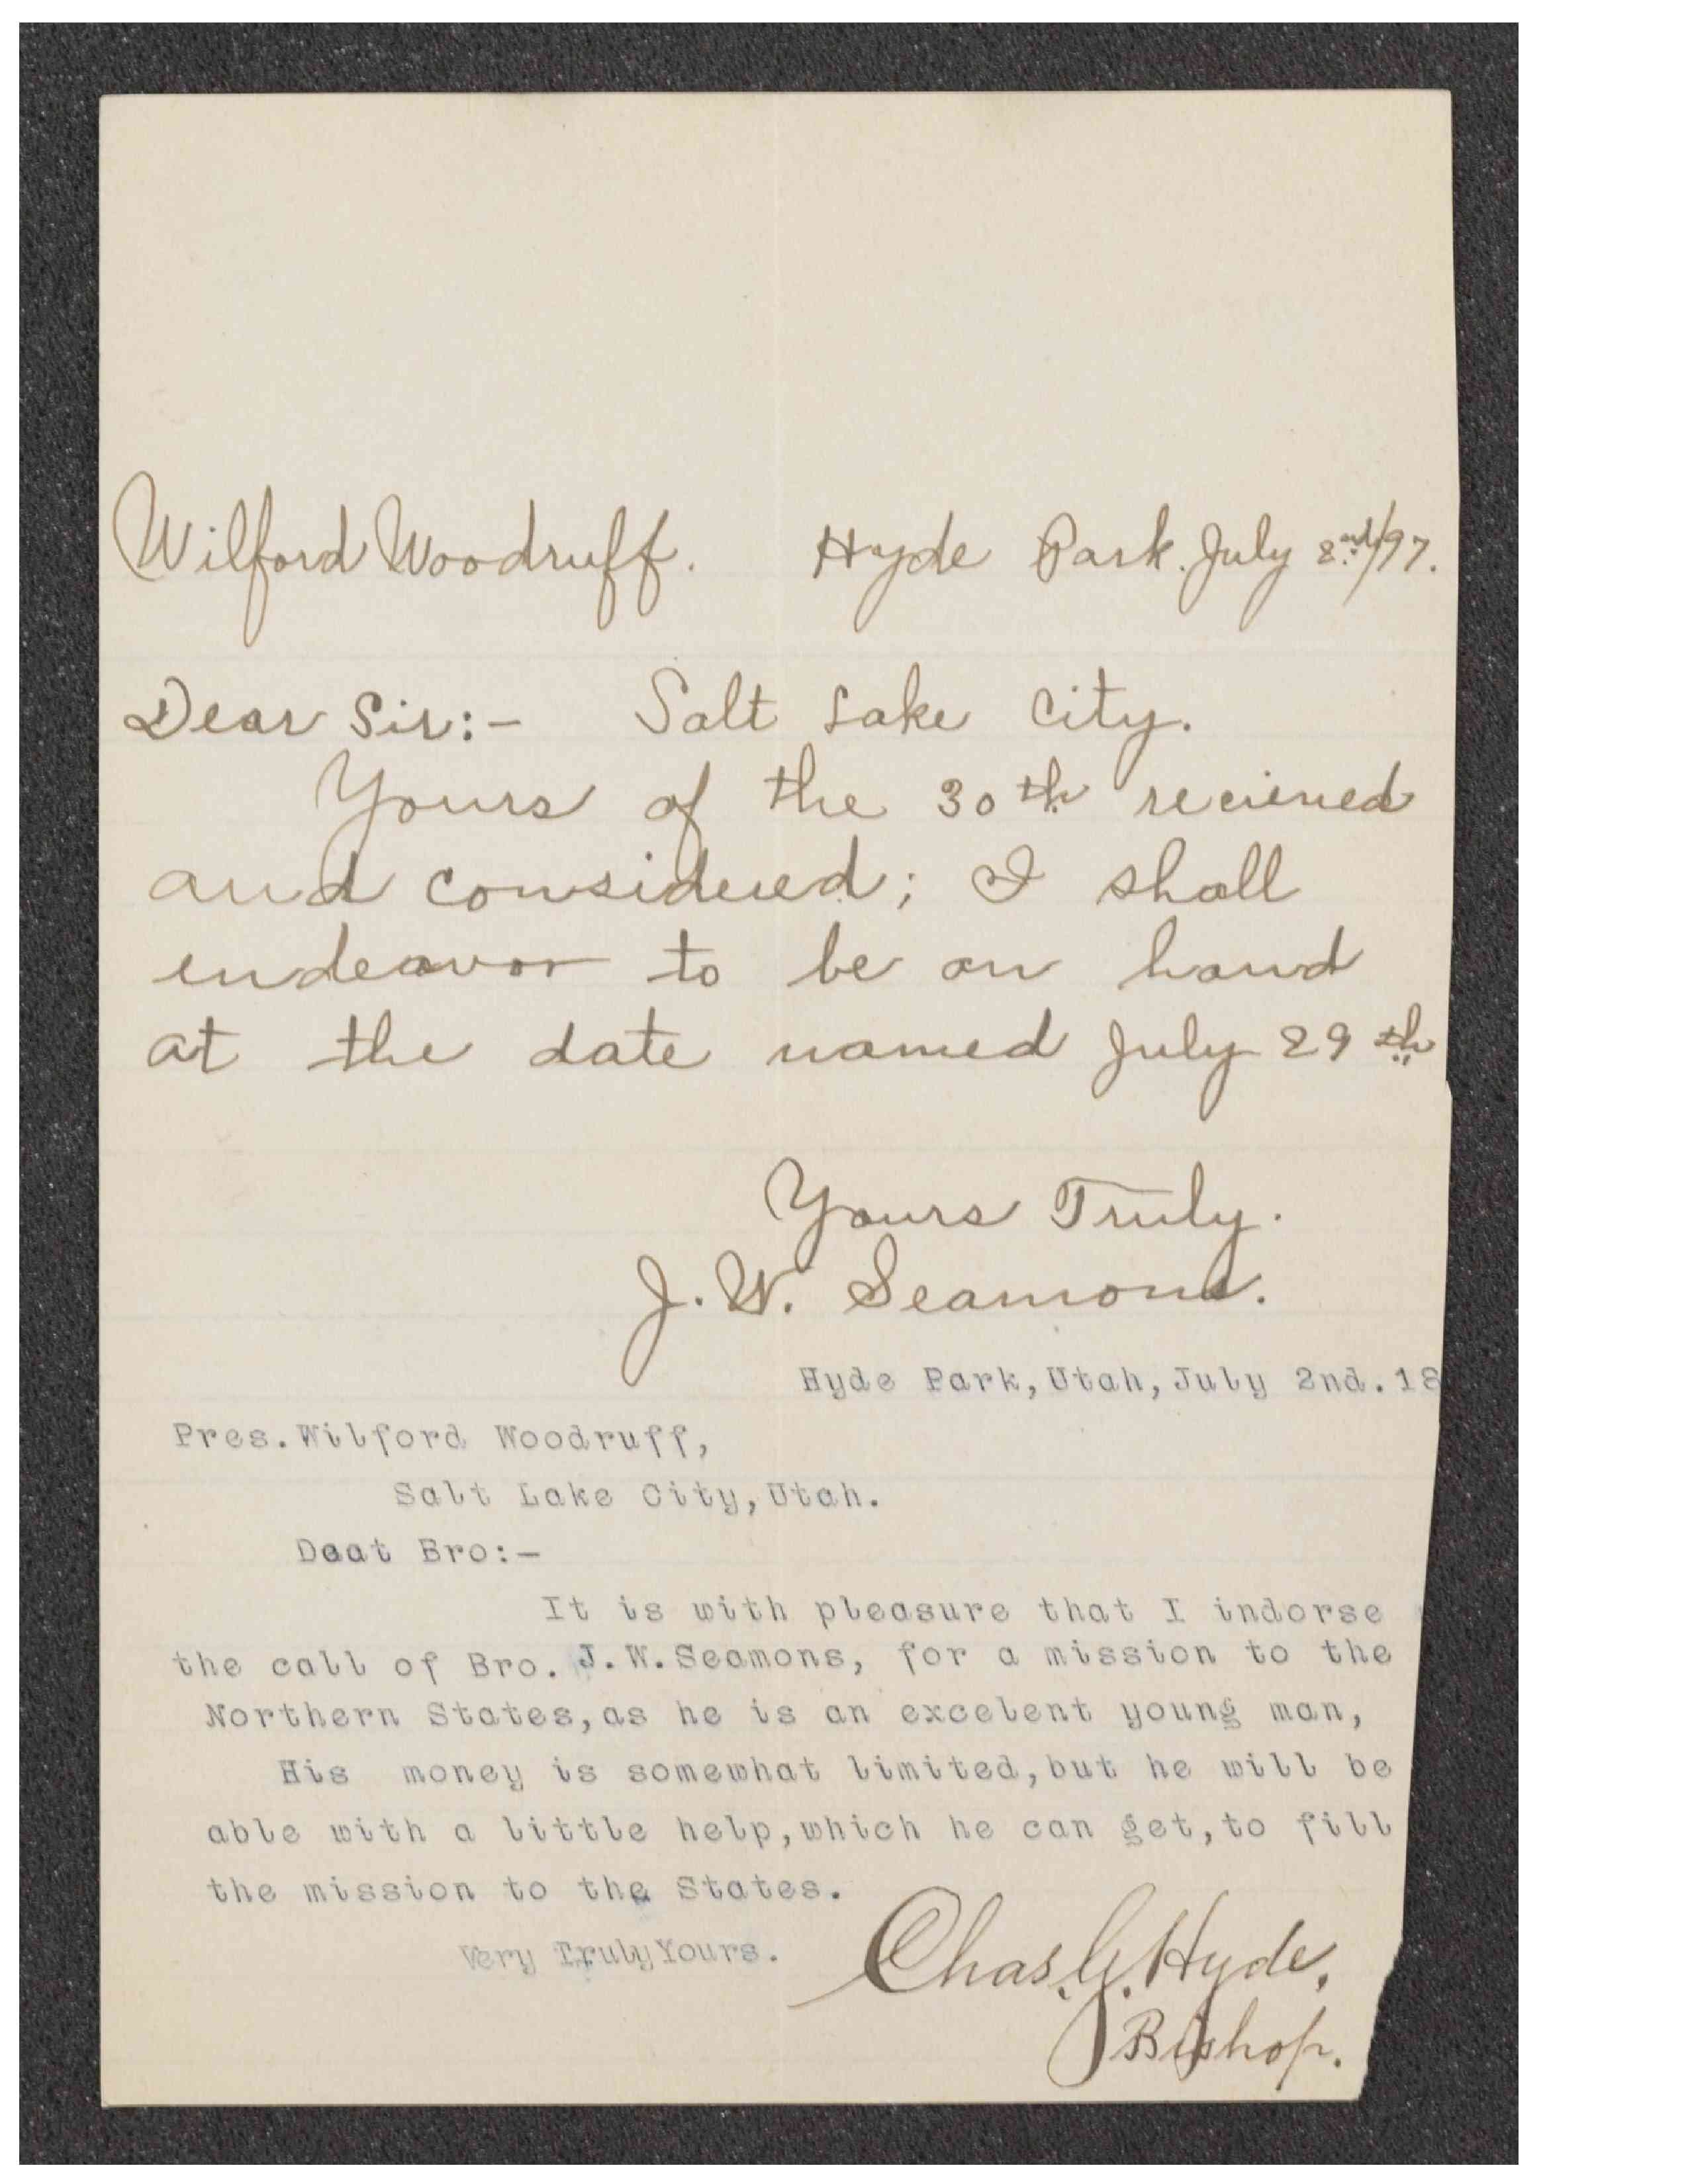 Wilford Woodruff. Hyde Park. July 2nd/97.
Dear Sir:- Salt Lake City.
Yours of the 30th recieved
and considered; I shall
endeavor to be on hand
at the date named July 29th
Yours Truly.
J. W. Seamons.
Hyde Park,Utah,July 2nd.18
Pres.Wilford Woodruff,
Salt Lake City,Utah.
Deat Bro:-
It is with pleasure that I indorse
the call of Bro. J.W.Seamons, for a mission to the
Northern States,as he is an excelent young man,
His money is somewhat limited,but he will be
able with a little help,which he can get,to fill
the mission to the States.
Very Truly Yours. Chas. G. Hyde,
Bishop.